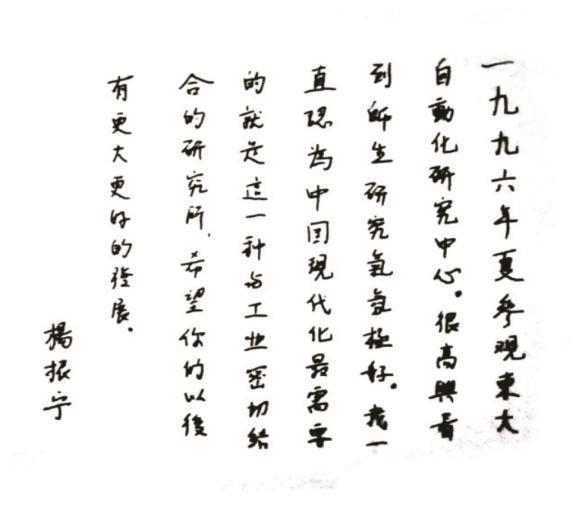 一九九六年夏参观東大
自動化研究中心。很高興看
到師生研究氣氛極好。我一
直认為中国現代化最需要
的就是這一种与工业密切结
合的研究所，希望你们以後
有更大更好的發展。
楊振宁